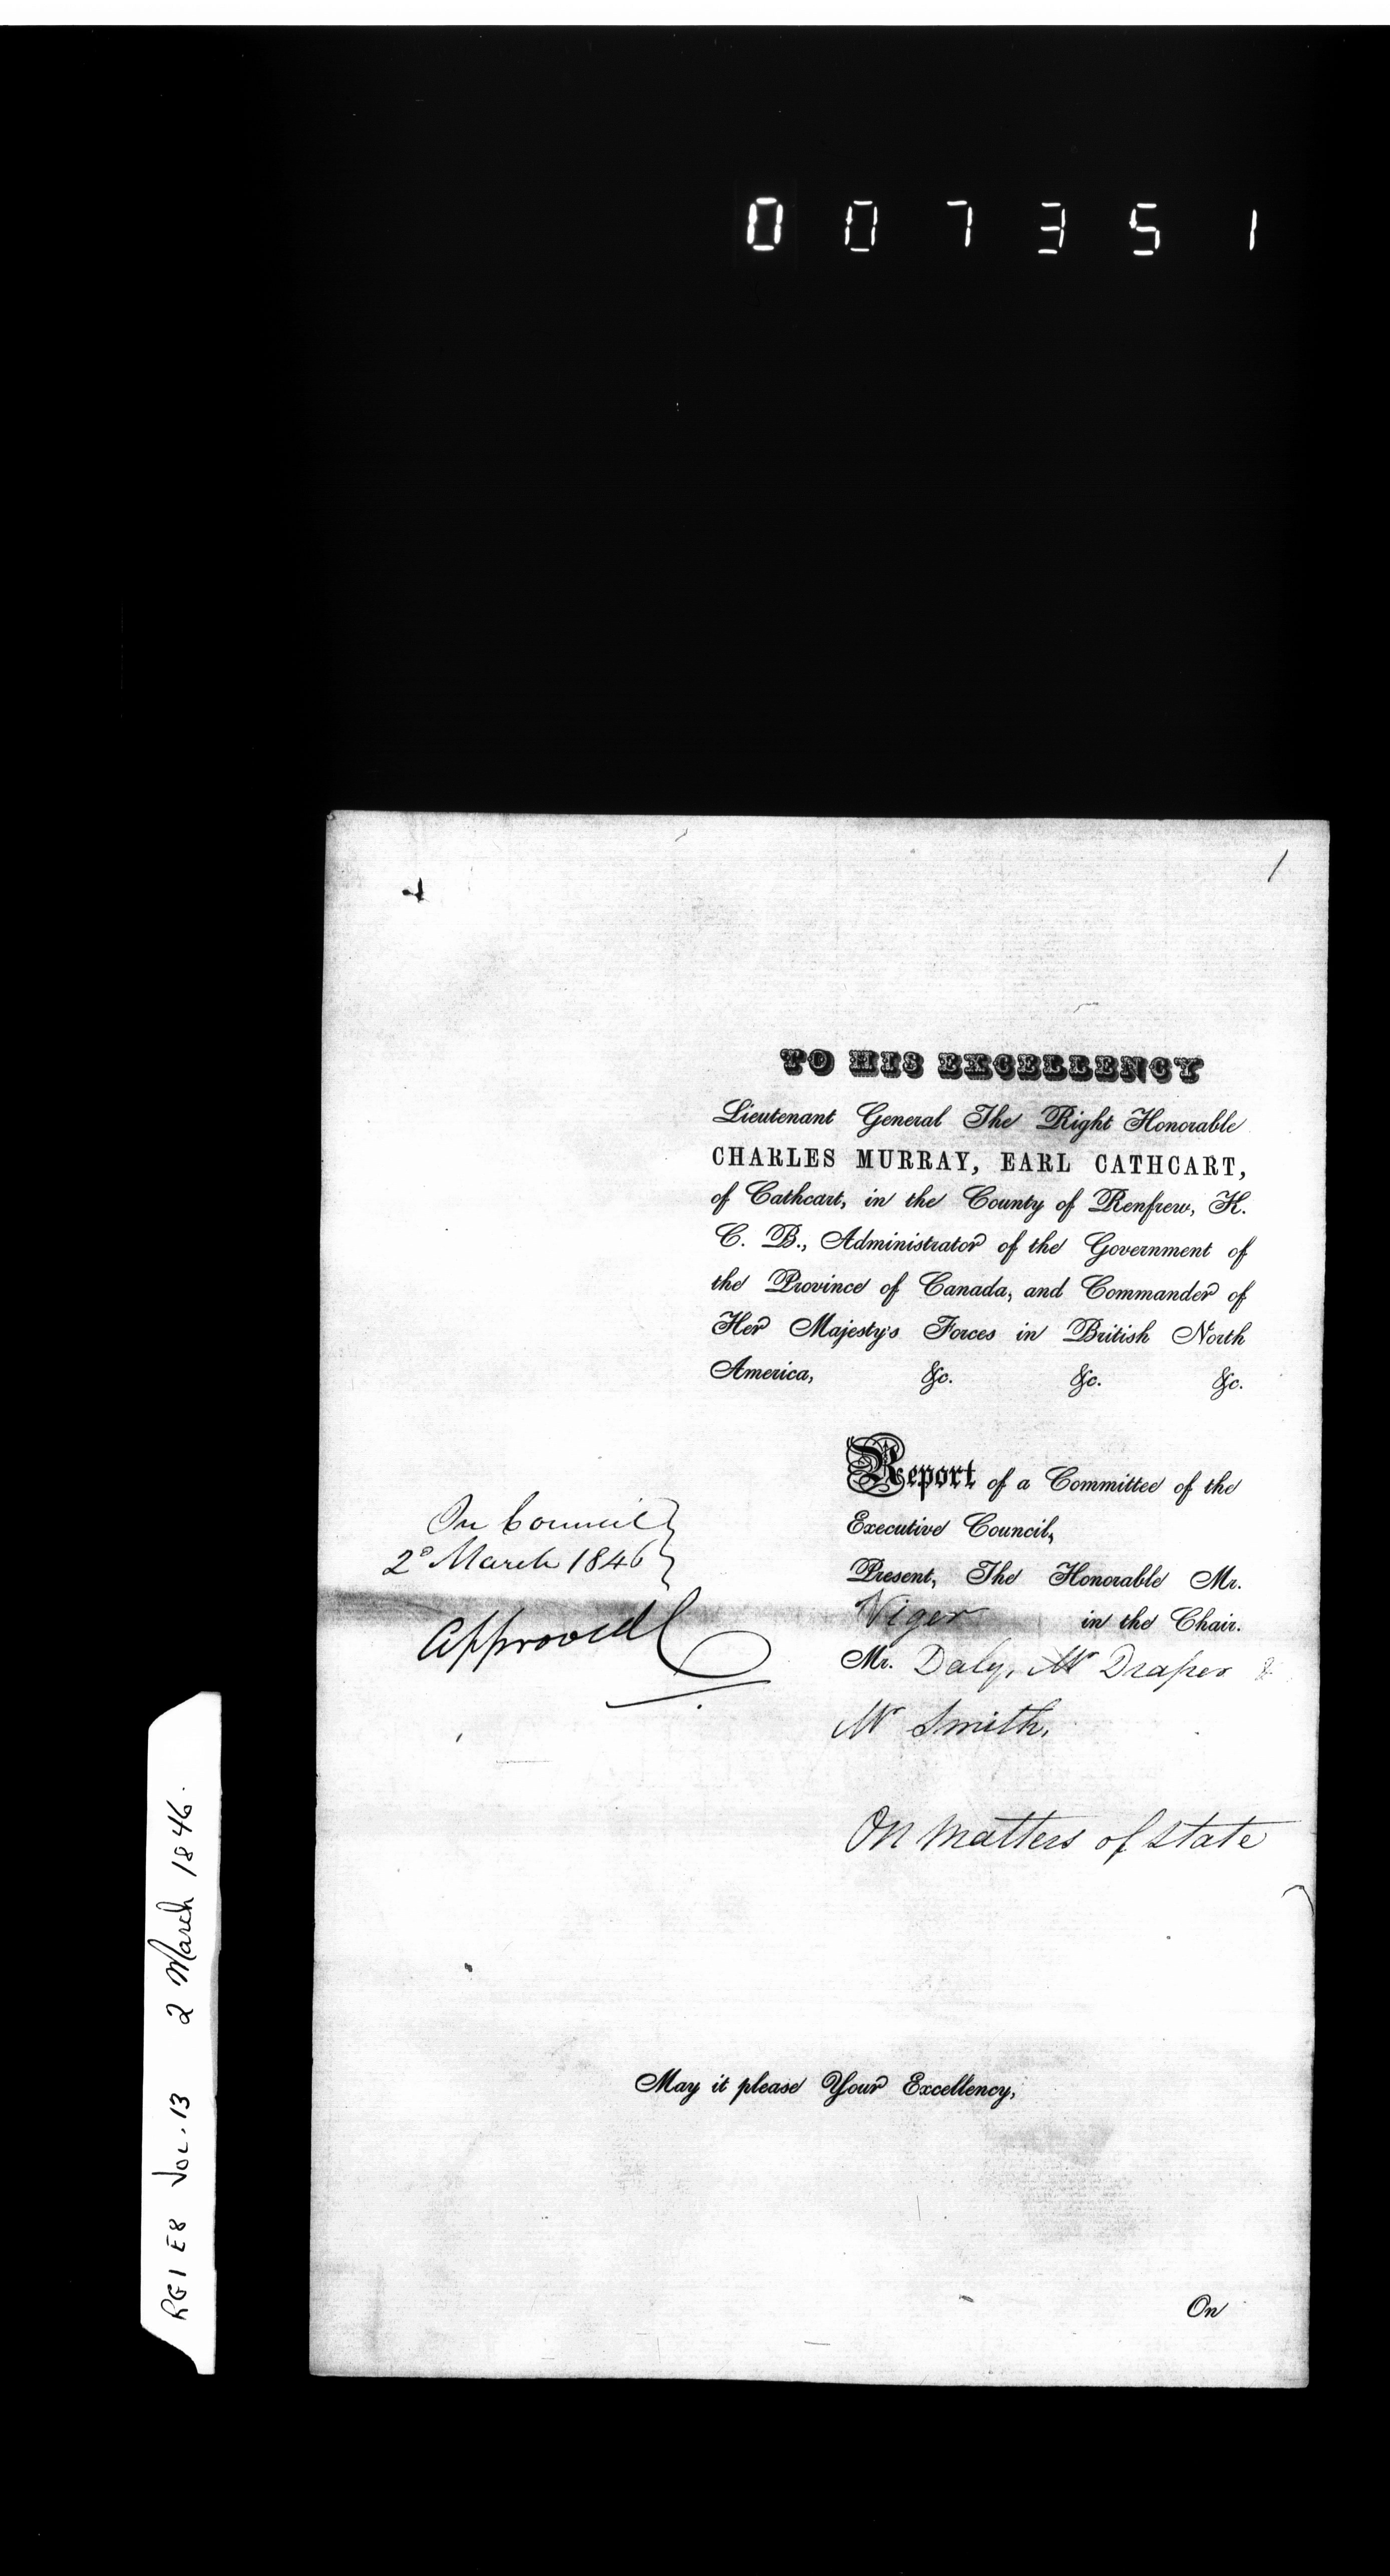 007351
1
TO HIS EXCELLENCY
Lieutenant General The Right Honorable
CHARLES MURRAY, EARL CATHCART,
of Cathcart, in the County of Renfrew, K.
C. B., Administrator of the Government of
the Province of Canada, and Commander of
Her Majesty's Forces in British North
America, &c. &c. &c.
Report of a Committee of the
Executive Council,
Present, The Honorable Mr.
Viger in the Chair.
Mr. Daly, Mr Draper &
Mr Smith,
On Matters of State
In Council
2d March 1846
Approved
May it please Your Excellency,
On
RG1 E8 Vol. 13 2 March 1846.